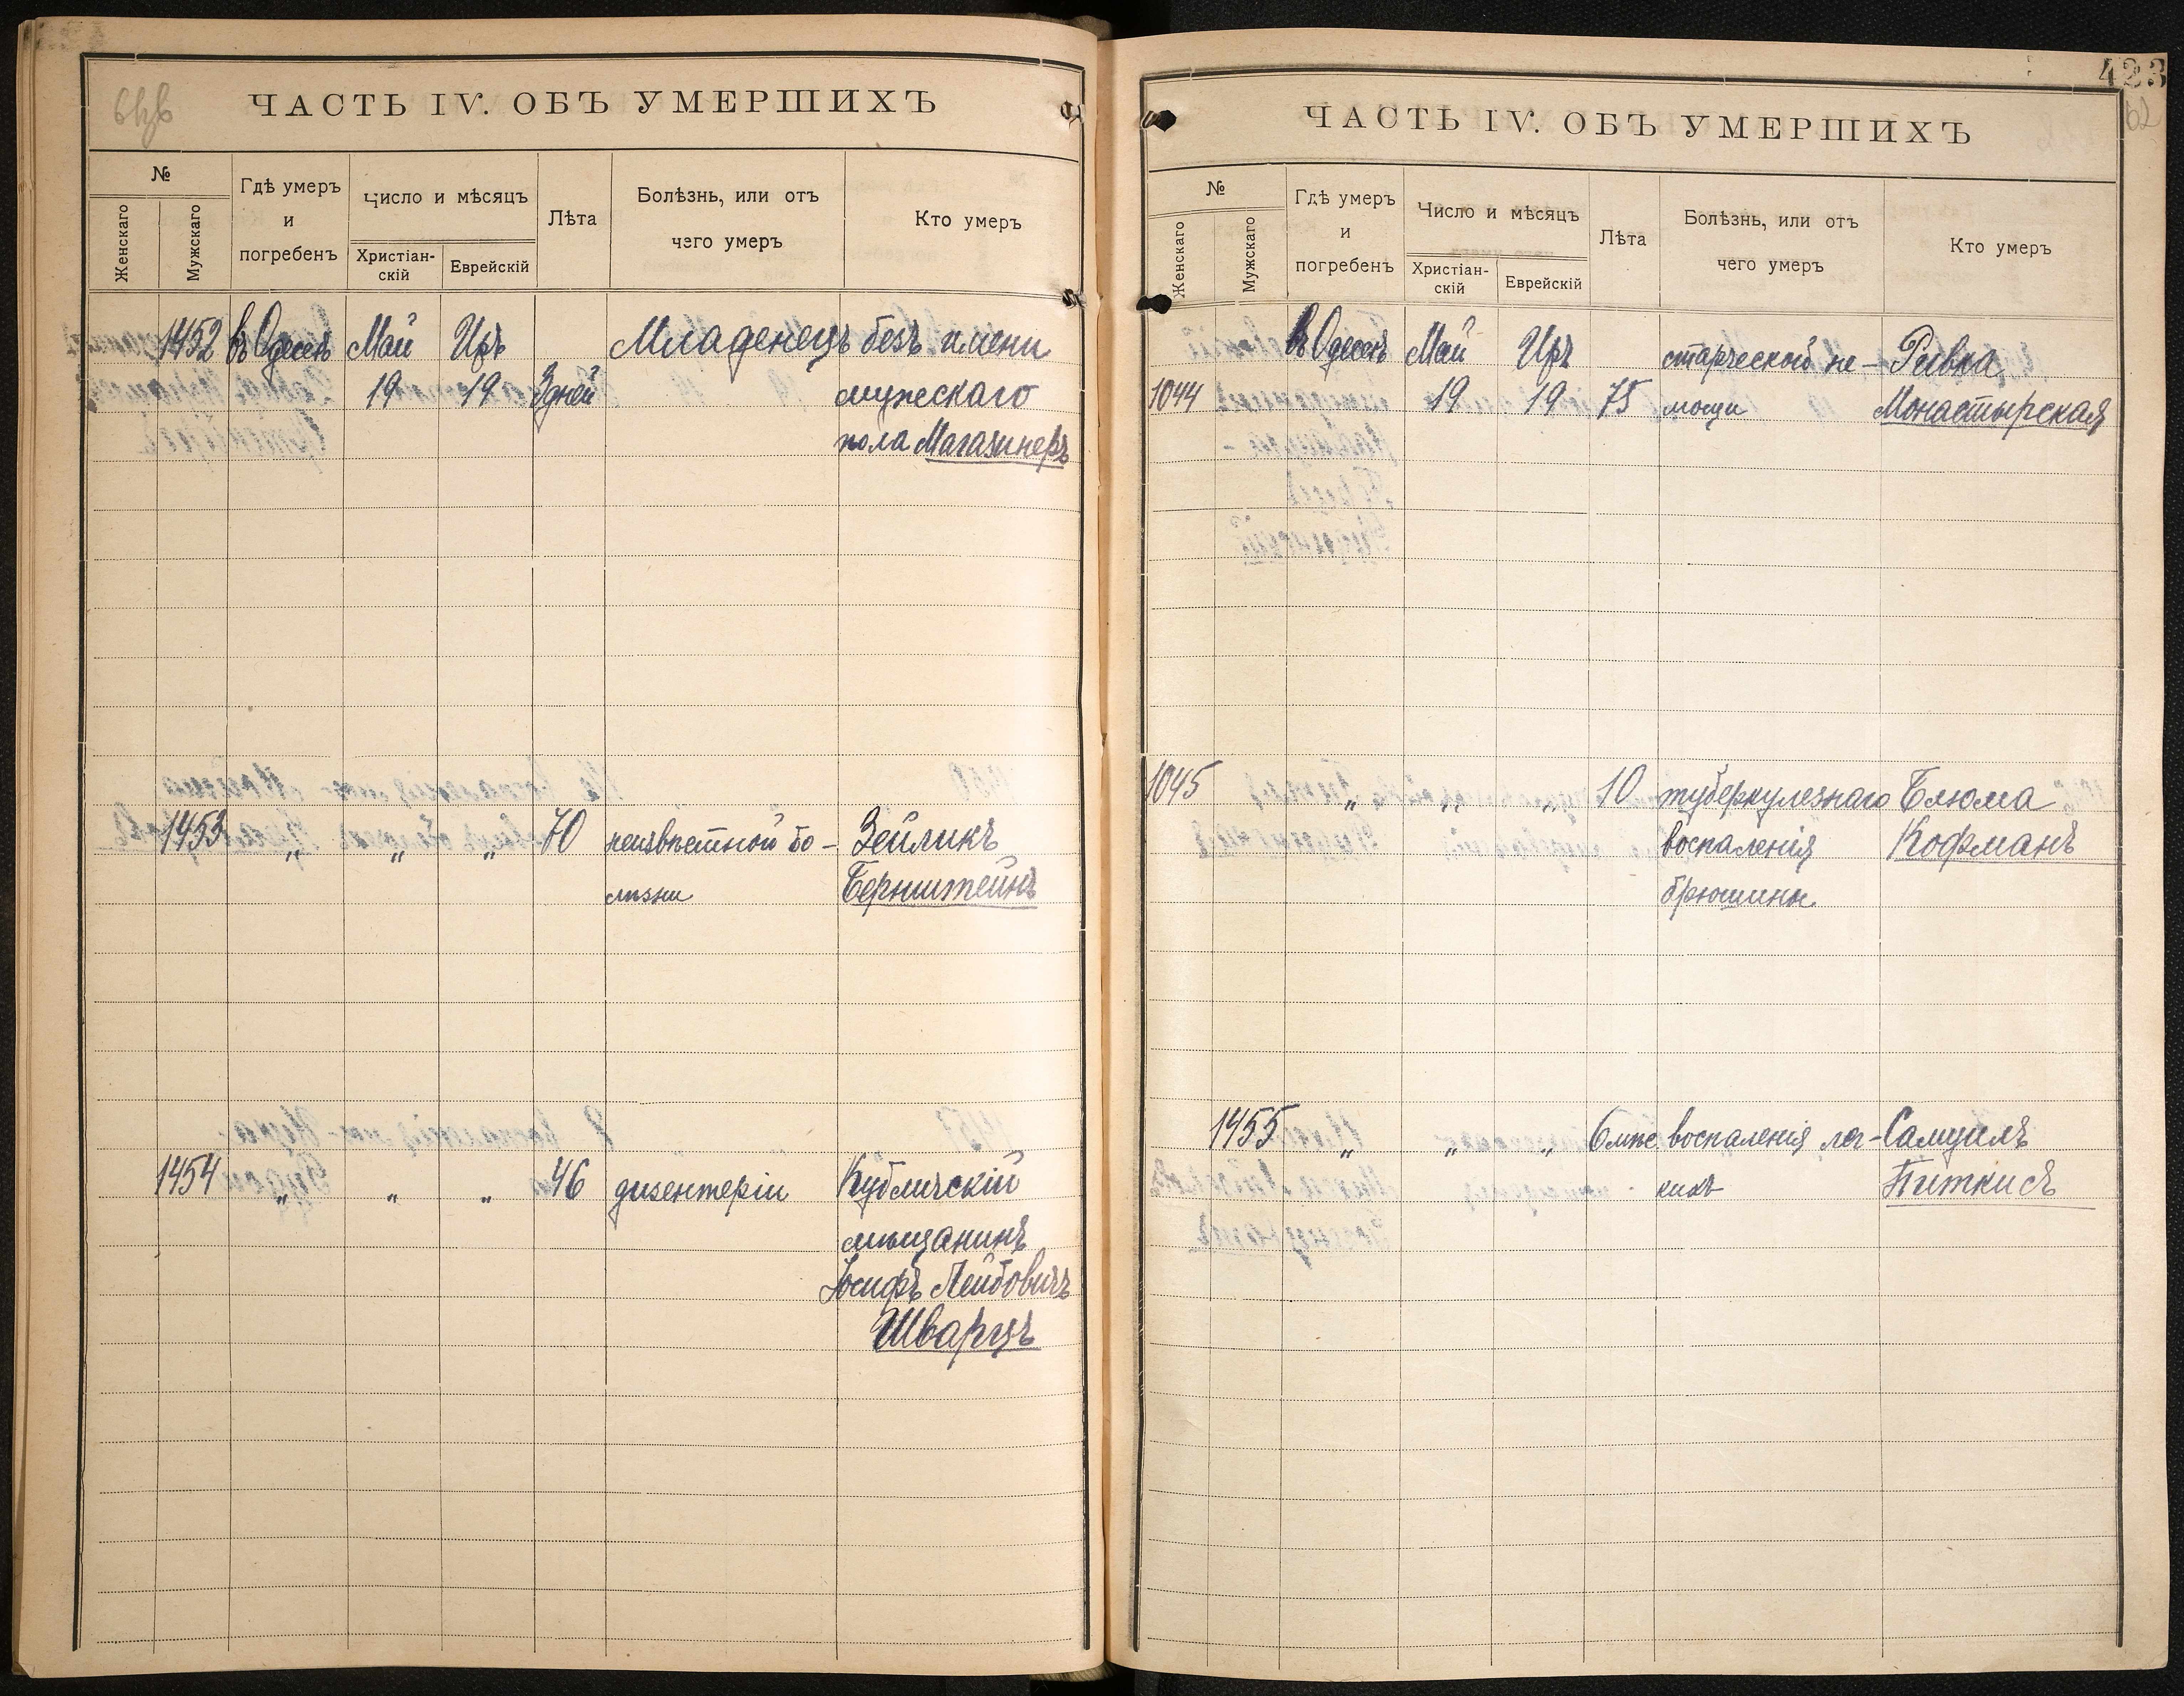 ЧАСТЬ IV. ОБЪ УМЕРШИХЪ
№
Женскаго
Мужскаго
Гдѣ умеръ
и
погребенъ
Число и мѣсяцъ
Христіан-
скій
Еврейскій
Лѣта
Болѣзнь, или отъ
чего умеръ
Кто умеръ
1452 въ Одессѣ Май Иръ Младенецъ безъ имени
19 19 3 дней мужескаго
пола Магазинеръ
1453 „ „ „ 70 неизвѣстной бо- Зейликъ
лѣзни Бернштейнъ
1454 „ „ „ 46 дизентеріи Кубличскій
мѣщанинъ
Іосифъ Лейбовичъ
Шварцъ
423
62
ЧАСТЬ IV. ОБЪ УМЕРШИХЪ
№
Женскаго
Мужскаго
Гдѣ умеръ
и
погребенъ
Число и мѣсяцъ
Христіан-
скій
Еврейскій
Лѣта
Болѣзнь, или отъ
чего умеръ
Кто умеръ
въ Одессѣ Май Иръ старческой не- Ривка
1044 19 19 75 мощи Монастырская
1045 „ „ „ 10 туберкулезнаго Блюма
воспаленія Кофманъ
брюшины
1455 „ „ „ 6 мѣс. воспаленія лег- Самуилъ
кихъ Питкисъ